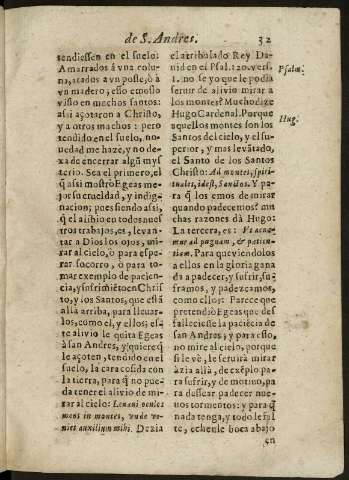 de S. Andres.
32
tendiessen en el suelo:
Amarrados à vna colu
na, atados a vn poste, ò à
vn madero, esso emosło
visto en muchos santos:
assi açotaron a Christo,
y a otros muchos: pero
tendido en el suelo, no-
uedad me haze, y no de-
xa de encerrar algũ mys
terio. Sea el primero, el
q̃ assi mostrò Egeas me-
jor su crueldad, y indig-
nacion; pues siendo assi,
q̃ el aliuio en todos nues
tros trabajos, es, leuan-
tar a Dios los ojos, mi-
rar al cielo, ò para espe-
rar socorro, o para to-
mar exemplo de pacien-
cia, y sufrimiẽto en Chris
to, y los Santos, que està
allà arriba, para lleuar-
los, como el, y ellos; es-
te aliuio le quita Egeas
à san Andres, y quiere q̃
le açoten, tendido en el
suelo, la cara cosida con
la tierra, para q̃ no pue-
da tener el aliuio de mi-
rar al cielo: Leuaui oculos
meos in montes, vnde ve-
niet auxilium mihi. Dezia
el atribulado Rey Da-
uid en el Psal. 120. vers.
1. no se yo que le podia
seruir de aliuio mirar a
los montes? Mucho dize
Hugo Cardenal. Porque
aquellos montes son los
Santos del cielo, y el su-
perior, y mas leuãtado,
el Santo de los Santos
Christo: Ad montes, spiri-
tuales, idest, Sanctos. Y pa-
ra q̃ los emos de mirar
quando padecemos? mu
chas razones dà Hugo:
La tercera, es: Vt acue-
mur ad pugnam, & patien-
tiam. Para que viendolos
a ellos en la gloria gana
da a padecer, y sufrir, su-
framos, y padezcamos,
como ellos: Parece que
pretendiò Egeas que des
falleciesse la paciẽcia de
san Andres; y para esto,
no mire al cielo, porque
si le vè, le seruirà mirar
àzia allà, de exẽplo pa-
ra sufrir, y de motiuo, pa
ra dessear padecer nue-
uos tormentos: y para q̃
nada tenga, y todo le fal
te, echenle boca abajo
en
Psalm.
Hug.